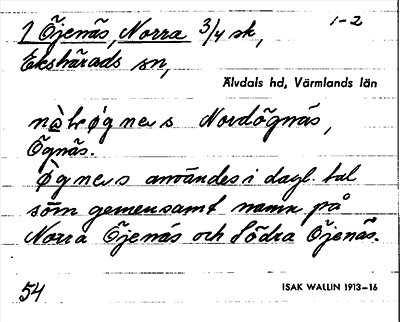 1 Öjenäs, Norra 3/4 sk, 1-2
Ekshärads sn,
Älvdals hd, Värmlands län
Nordögnäs,
Ögnäs.
användes i dagl. tal
som gemensamt namn på
Norra Öjenäs och Södra Öjenäs.
54
ISAK WALLIN 1913-16